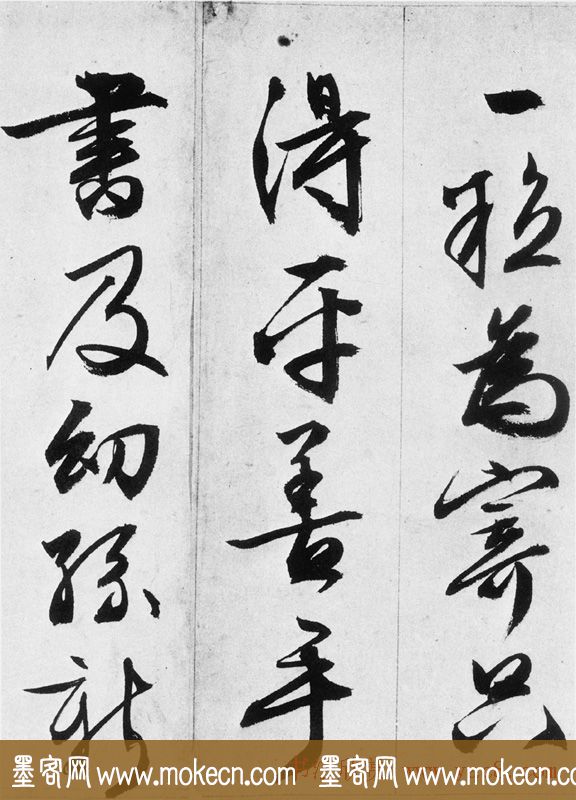 一為寄只
得平善手
書及幼孫新
墨客网 www.mokecn.com 墨客网 www.mokecn.com